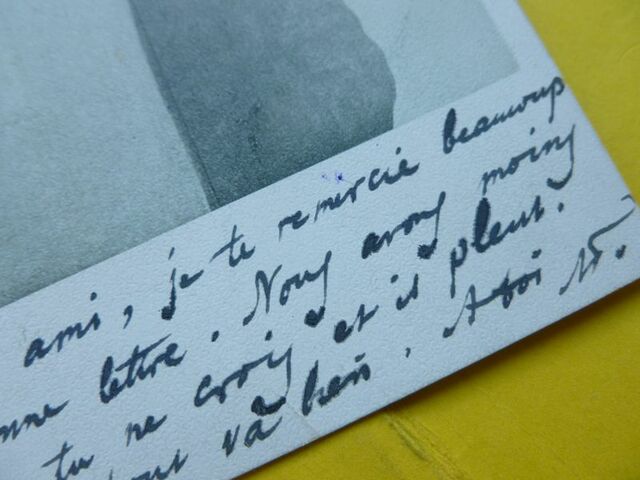 ami, je te remercie beaucoup
lettre. Nous avons moins
tu ne crois et il pleut.
va bien. A toi